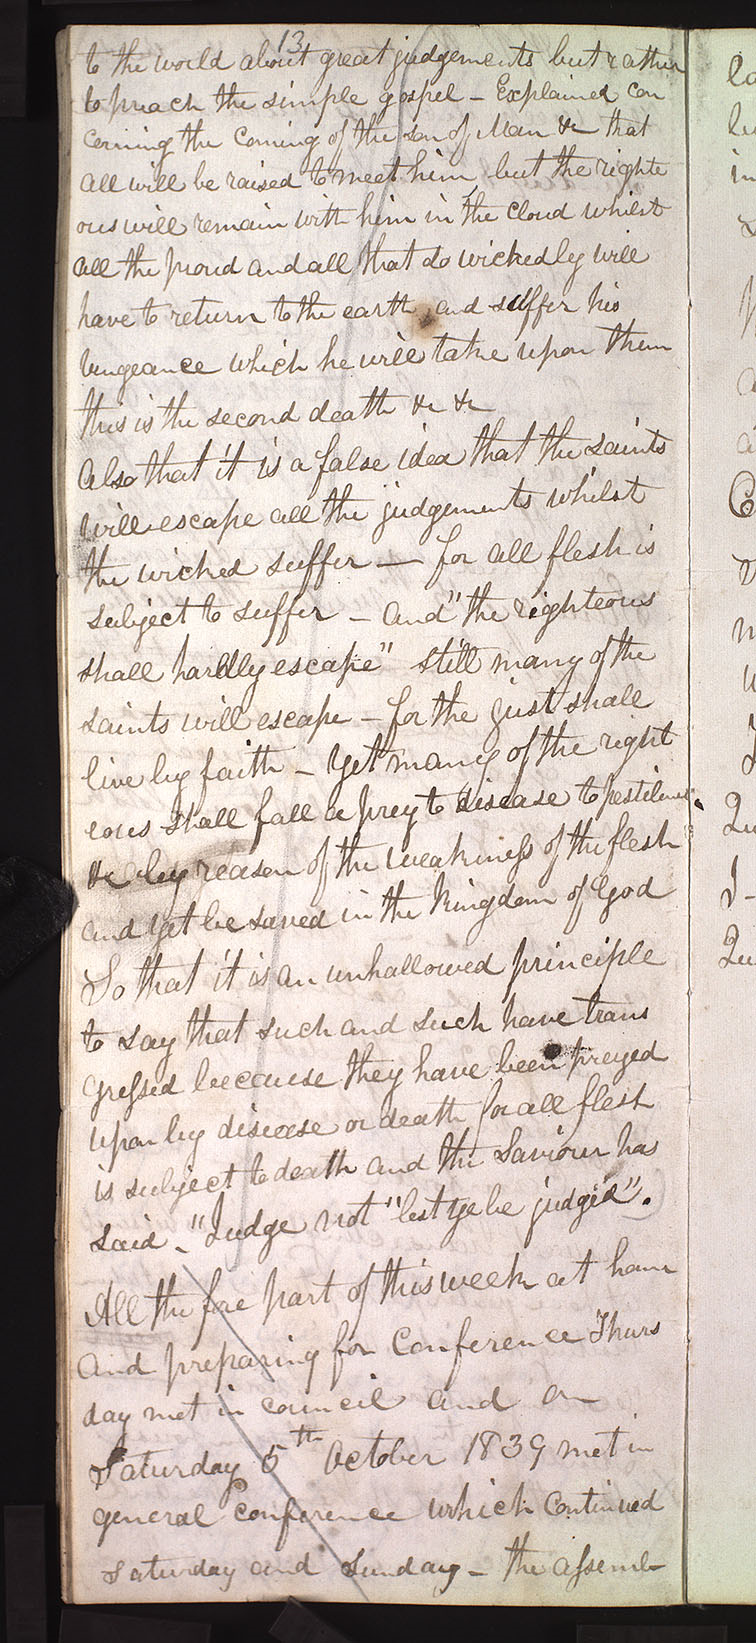 13
to the world about great judgements but rather
to preach the simple gospel - Explained con
cerning the coming of the son of Man &c that
all will be raised to meet him but the righte
ous will remain with him in the cloud whilst
all the proud and all that do wickedly will
have to return to the earth and suffer his
vengeance which he will take upon them
this is the second death &c &c
Also that it is a false idea that the saints
will escape all the judgements whilst
the wicked suffer — for all flesh is
subject to suffer - and "the righteous
shall hardly escape" still many of the
saints will escape - for the just shall
live by faith - Yet many of the right
eous shall fall a prey to disease to pestilence
&c by reason of the weakness of the flesh
and yet be saved in the Kingdom of God
So that it is an unhallowed principle
to say that such and such have trans
gressed because they have been preyed
upon by disease or death for all flesh
is subject to death and the Saviour has
said - "Judge not "lest ye be judged".
All the fore part of this week at home
and preparing for Conference Thurs
day met in council and on
Saturday 5th October 1839 met in
general conference which continued
Saturday and Sunday - the assemb